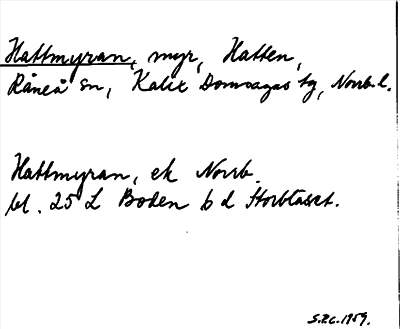 Hattmyran, myr, Hatten,
Råneå sn, Kalix Domsagas tg, Norrb. l.
Hattmyran, ek Norrb.
bl. 25 L Boden 6 d Storblåset.
S.E.G. 1959.